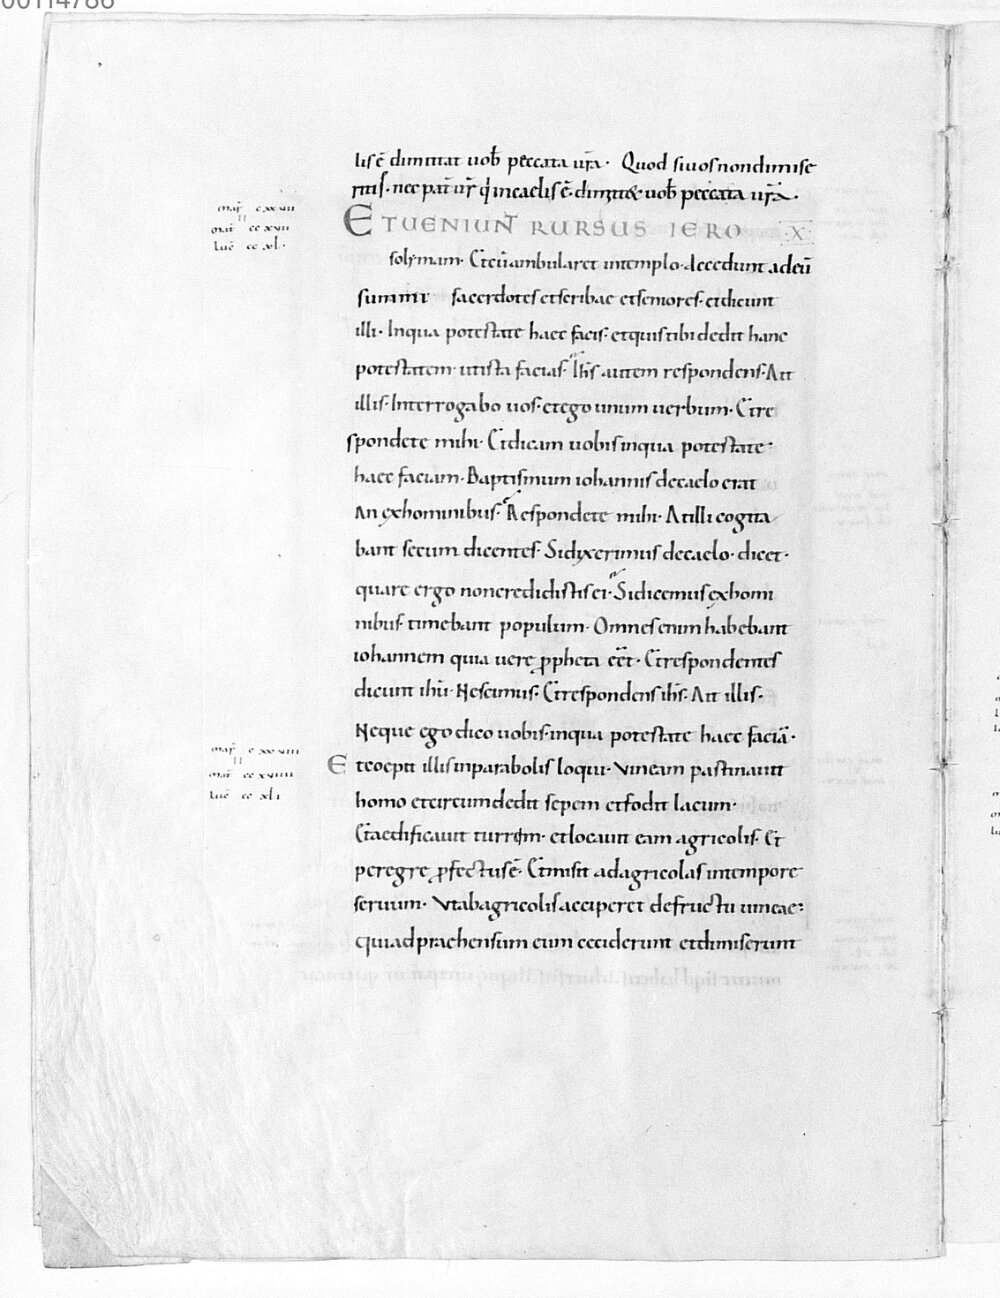 00114786
lis ē dimittat uob̄ peccata ur̄a · Quod si uos non dimise
ritis · nec pat̄ ur̄ q̄ in caelis ē · dimittet uob̄ peccata ur̄a ·
mar̄ c xxvii
mat̄ cc xvii
luc̄ cc xl ·
ET UENIUNT RURSUS IERO X
solymam · Et cū ambularet in templo · accedunt ad eū
summi sacerdotes et scribae et seniores · et dicunt
illi · In qua potestate haec facis · et quis tibi dedit hanc
potestatem · ut ista facias · Ihs̄ autem respondens · Ait
illis · Interrogabo uos · et ego unum uerbum · Et re
spondete mihi · Et dicam uobis in qua potestate ·
haec faciam · Baptismum iohannis de caelo erat
An ex hominibus · Respondete mihi · At illi cogita
bant secum dicentes · Si dixerimus de caelo · dicet ·
quare ergo non credidistis ei · Si dicemus ex homi
nibus · timebant populum · Omnes enim habebant
iohannem quia uere ꝓpheta eēt · Et respondentes
dicunt ihū · Nescimus · Et respondens ihs̄ · Ait illis ·
Neque ego dico uobis · in qua potestate haec faciā ·
mar̄ c xxviii
mat̄ cc xviiii
luc̄ cc xli
Et coepit illis in parabolis loqui · Vineam pastinauit
homo et circumdedit sepem et fodit lacum ·
Et aedificauit turrem · et locauit eam agricolis · Et
peregre ꝓfectus ē · Et misit ad agricolas in tempore
seruum · Vt ab agricolis acciperet de fructu uineae ·
qui adpraehensum eum ceciderunt et dimiserunt